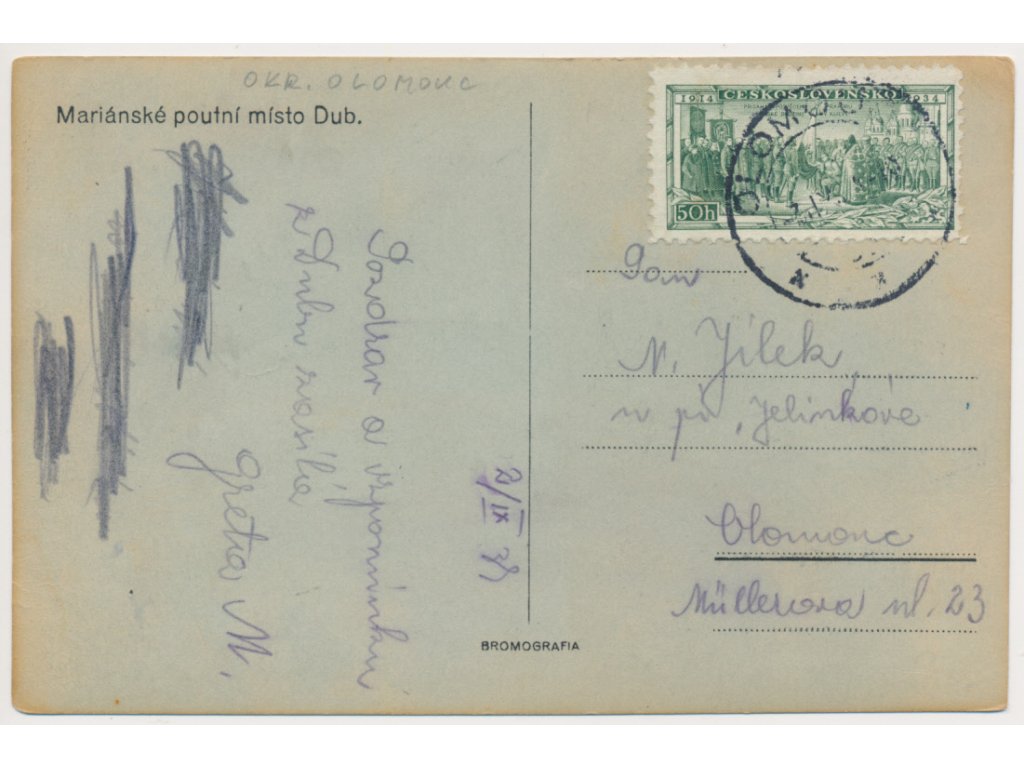 OKR. OLOMOUC
Mariánské poutní místo Dub.
1914 ČESKOSLOVENSKO 1934
50h
OLOMOUC
Pozdrav a vzpomínku
z Dubu zasílá
Greta M.
2/IX 34
Pan
N. Jílek
u pí Jelínkové
Olomouc
Müllerova ul. 23
BROMOGRAFIA